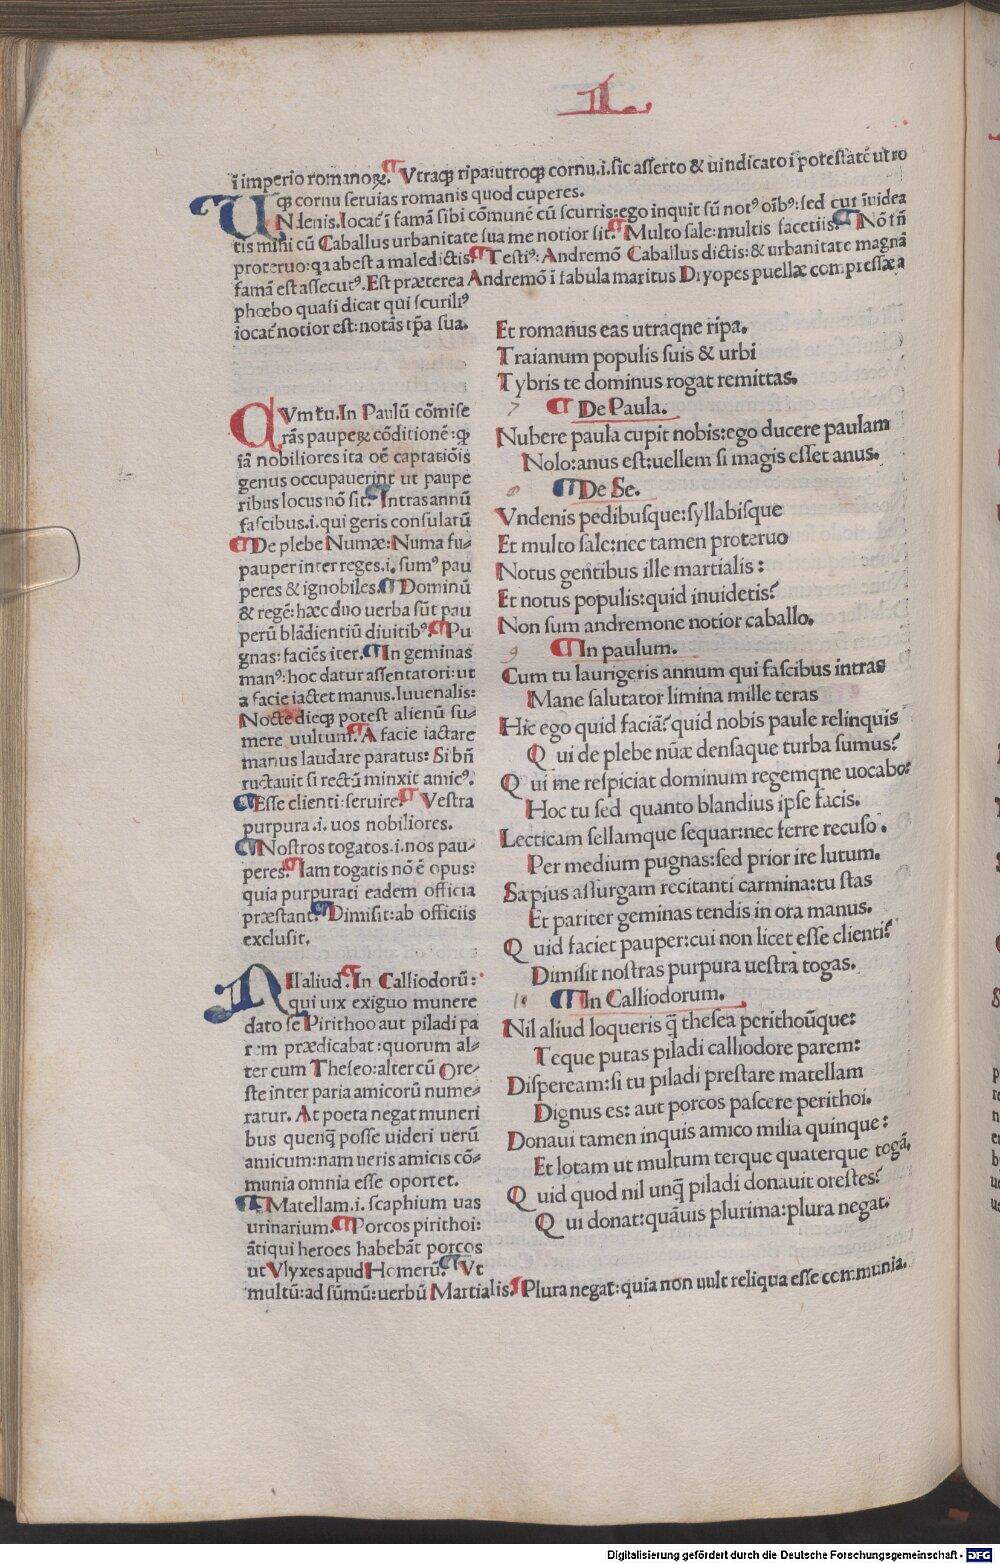 ī imperio romanoꝝ. ¶ Vtraqꝫ ripa: utroqꝫ cornu .i. sic asserto & uindicato ī potestatē ut ro
Uqꝫ cornu seruias romanis quod cuperes.
Ndenis. Iocat᷑ ī famā sibi cōmunē cū scurris: ego inquit sū notꝰ oībꝰ: sed cur īuidea
tis mihi cū Caballus urbanitate sua me notior sit. ¶ Multo sale: multis facetiis. ¶ Nō tn̄
proteruo: qa abest a maledictis. ¶ Testiꝰ: Andremō Caballus dictis: & urbanitate magnā
famā est assecutꝰ. Est præterea Andremō ī fabula maritus Dryopes puellæ compressæ a
phœbo quasi dicat qui scurilitꝰ
iocat᷑ notior est: notās tp̄a sua.
CVm tu. In Paulū cōmise
rās pauperꝝ cōditionē: qꝫ
iā nobiliores ita oē captatiōis
genus occupauerint ut paupe
ribus locus nō sit. ¶ Intras annū
fascibus .i. qui geris consulatū
¶ De plebe Numæ: Numa fu⸗
pauper inter reges .i. sumꝰ pau
peres & ignobiles. ¶ Dominū
& regē: hæc duo uerba sūt pau
perū blādientiū diuitibꝰ. ¶ Pu
gnas: faciēs iter. ¶ In geminas
manꝰ: hoc datur assentatori: ut
a facie iactet manus. Iuuenalis:
Nocte dieqꝫ potest alienū su⸗
mere uultum. ¶ A facie iactare
manus laudare paratus: Si bn̄
ructauit si rectū minxit amicꝰ.
¶ Esse clienti: seruire. ¶ Vestra
purpura .i. uos nobiliores.
¶ Nostros togatos .i. nos pau⸗
peres. ¶ Iam togatis nō ē opus:
quia purpurati eadem officia
præstant. ¶ Dimisit: ab officiis
exclusit.
NIl aliud. ¶ In Calliodorū:
qui uix exiguo munere
dato se Pirithoo aut piladi pa
rem prædicabat: quorum al⸗
ter cum Theseo: alter cū Ore⸗
ste inter paria amicorū nume⸗
ratur. At poeta negat muneri
bus quenq̄ posse uideri uerū
amicum: nam ueris amicis cō⸗
munia omnia esse oportet.
¶ Matellam .i. scaphium uas
urinarium. ¶ Porcos pirithoi:
ātiqui heroes habebāt porcos
ut Vlyxes apud Homerū. ¶ Vt
multū: ad sūmū: uerbū Martialis. ¶ Plura negat: quia non uult reliqua esse communia.
Et romanus eas utraqne ripa.
Traianum populis suis & urbi
Tybris te dominus rogat remittas.
7 ¶ De Paula.
Nubere paula cupit nobis: ego ducere paulam
Nolo: anus est: uellem si magis esset anus.
8 ¶ De Se.
Vndenis pedibusque: syllabisque
Et multo sale: nec tamen proteruo
Notus gentibus ille martialis:
Et notus populis: quid inuidetis?
Non sum andremone notior caballo.
9 ¶ In paulum.
Cum tu laurigeris annum qui fascibus intras
Mane salutator limina mille teras
Hic ego quid faciā? quid nobis paule relinquis
Qui de plebe nūæ densaque turba sumus?
Qui me respiciat dominum regemqne uocabo:
Hoc tu sed quanto blandius ipse facis.
Lecticam sellamque sequar: nec ferre recuso.
Per medium pugnas: sed prior ire lutum.
Sæpius assurgam recitanti carmina: tu stas
Et pariter geminas tendis in ora manus.
Quid faciet pauper: cui non licet esse clienti?
Dimisit nostras purpura uestra togas.
10 ¶ In Calliodorum.
Nil aliud loqueris q̄ thesea perithoūque:
Teque putas piladi calliodore parem:
Dispeream: si tu piladi prestare matellam
Dignus es: aut porcos pascere perithoi.
Donaui tamen inquis amico milia quinque:
Et lotam ut multum terque quaterque togā.
Quid quod nil unq̄ piladi donauit orestes?
Qui donat: quāuis plurima: plura negat.
Digitalisierung gefördert durch die Deutsche Forschungsgemeinschaft - DFG